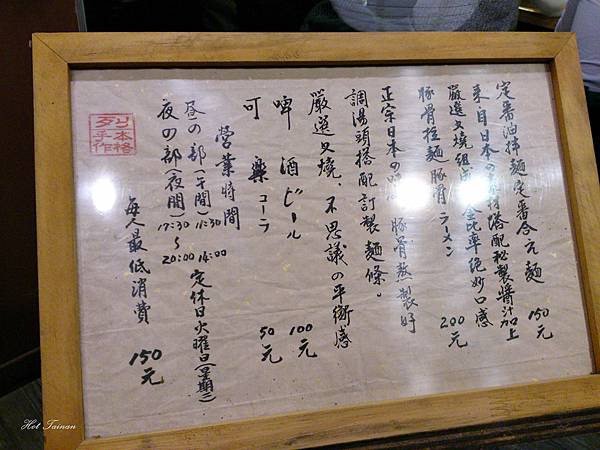 定番油拌麵 定番合え麵 150元
来自日本の食材搭配秘製醬汁加上
嚴選叉燒組成 金比率絶妙口感
豚骨拉麵 豚骨ラーメン 200元
正宗日本の 豚骨熬製好
調湯頭搭配訂製麵條。
嚴選叉燒、不思議の平衡感
啤酒 ビール 100元
可樂 コーラ 50元
營業時間
昼の部(午間) 11:30 14:00 定休日火曜日(星期二
夜の部(夜間) 17:30~20:00
每人最低消費 150元
本格
手作
Hot Tainan